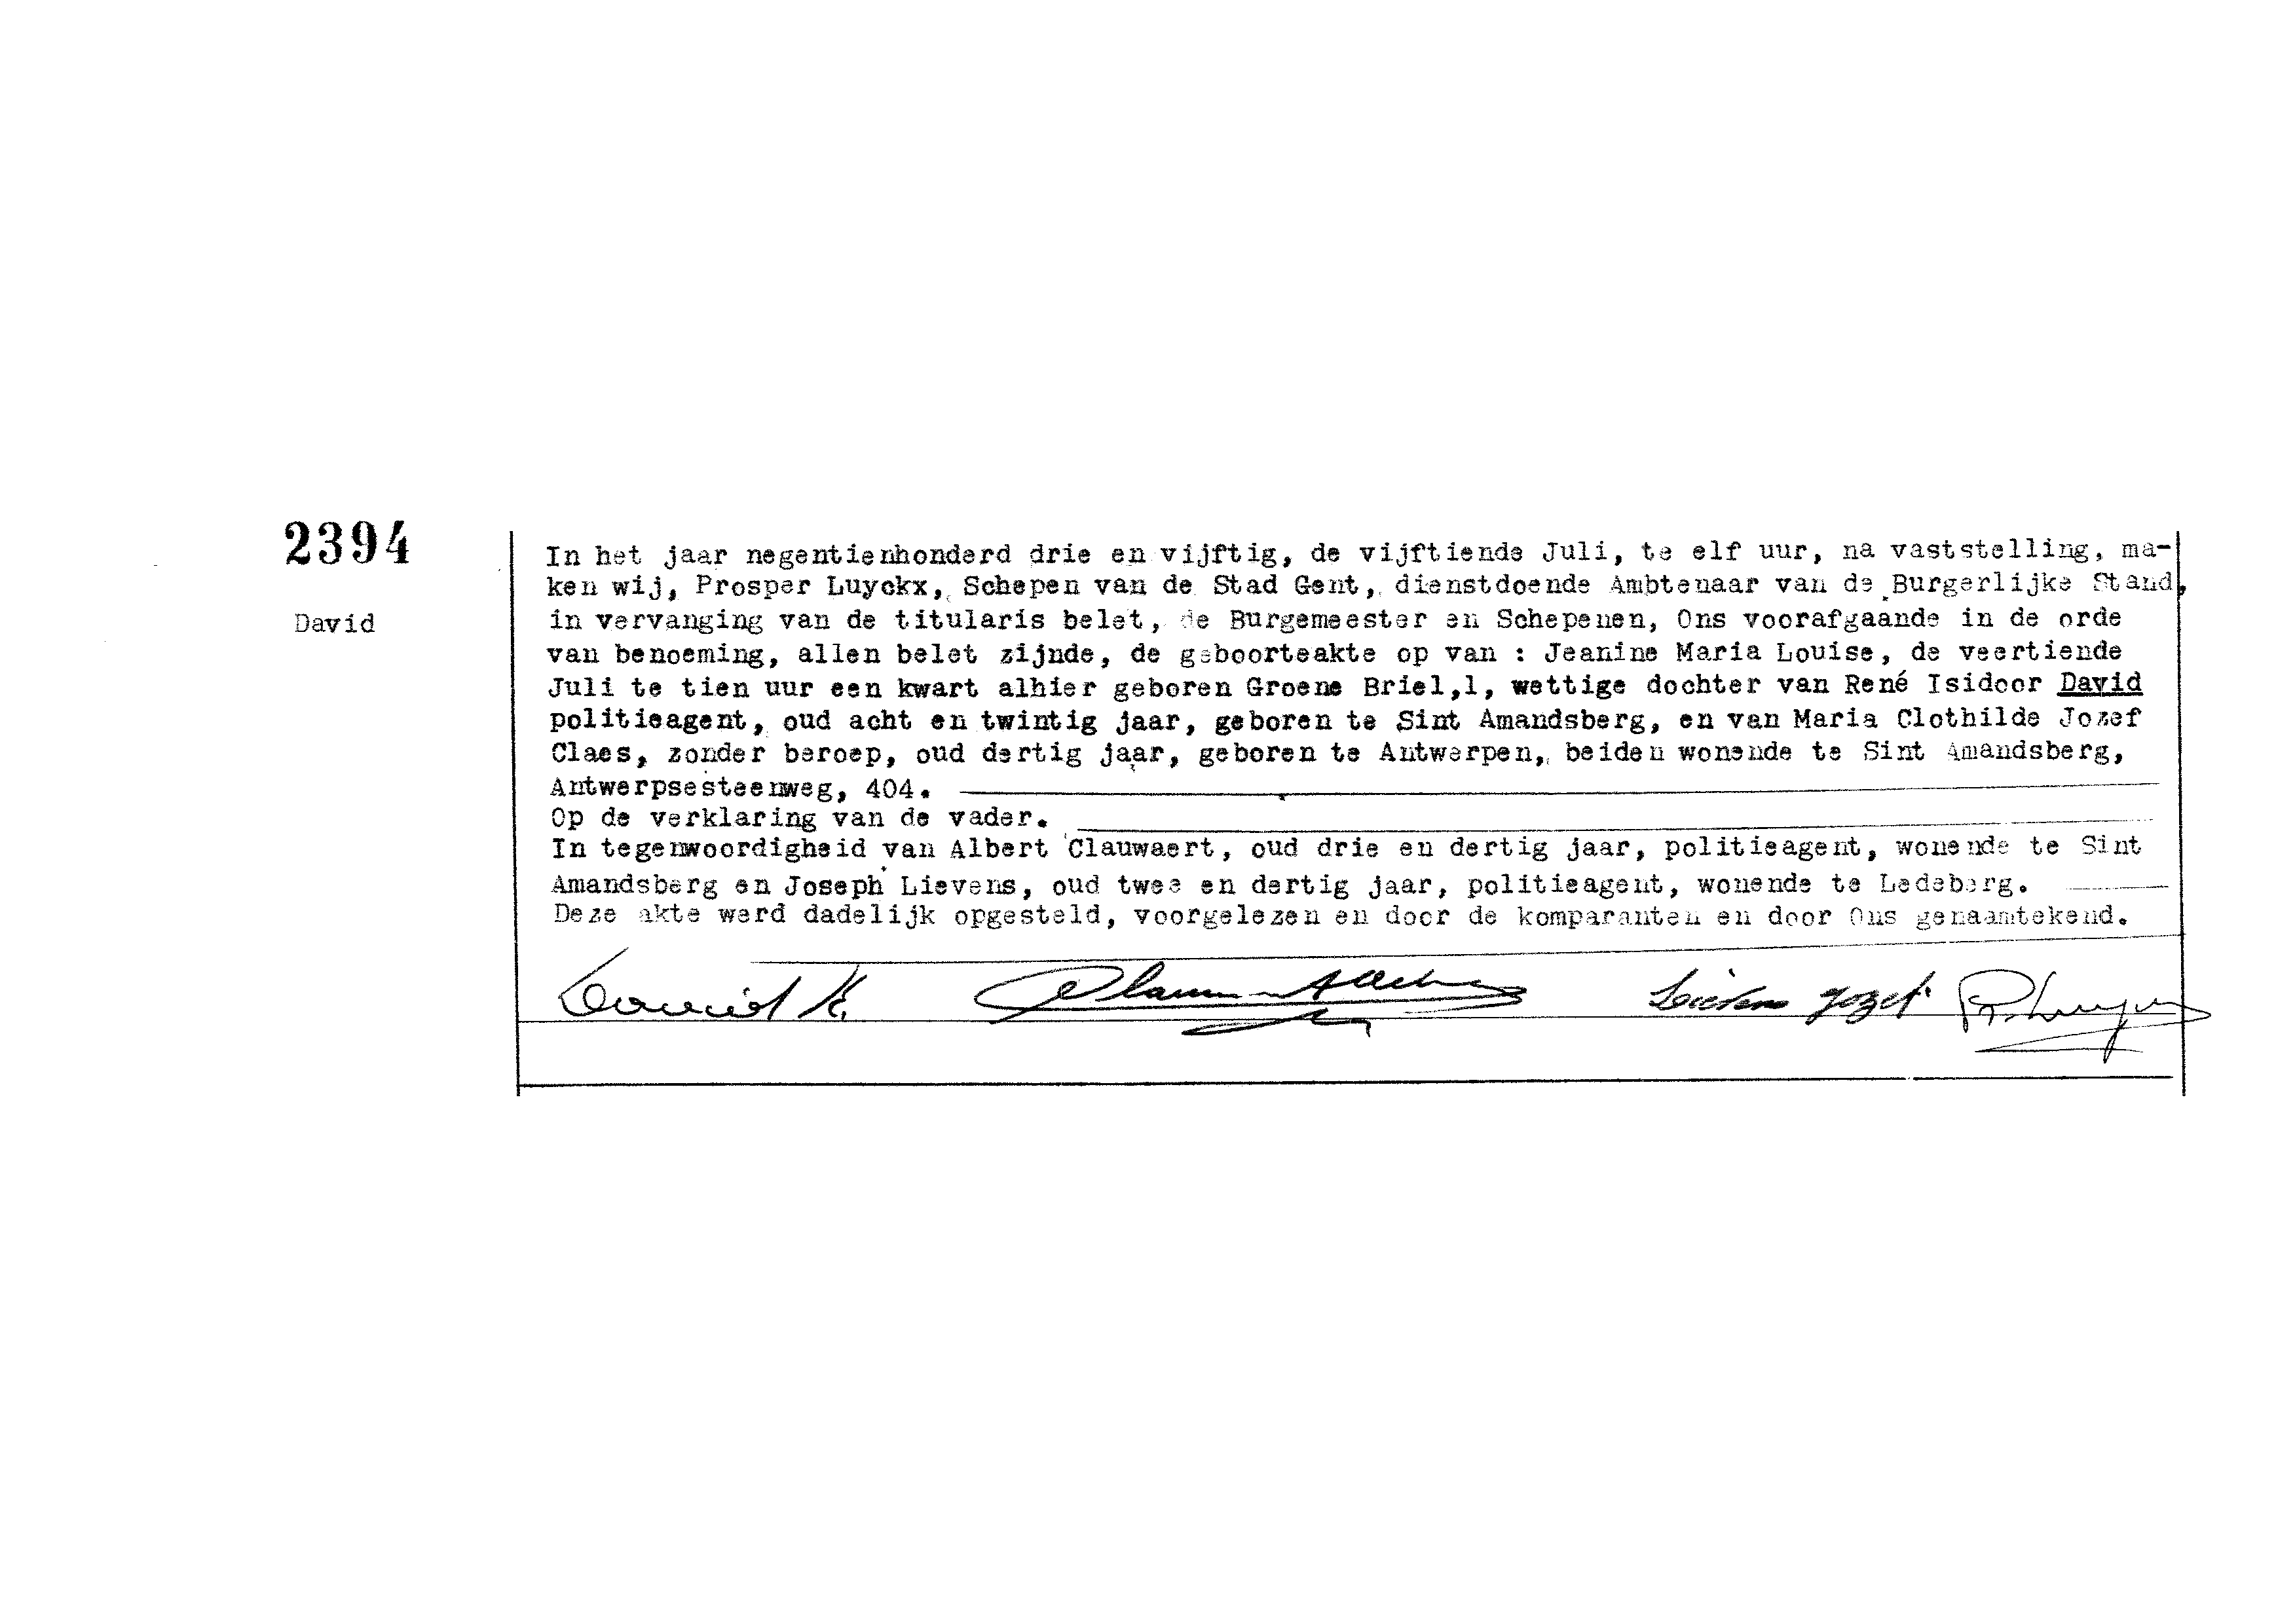 2394
David
In het jaar negentienhonderd drie en vijftig, de vijftiende Juli, te elf uur, na vaststelling, ma-
ken wij, Prosper Luyckx, Schepen van de Stad Gent, dienstdoende Ambtenaar van de Burgerlijke Stand,
in vervanging van de titularis belet, de Burgemeester en Schepenen, Ons voorafgaande in de orde
van benoeming, allen belet zijnde, de geboorteakte op van : Jeanine Maria Louise, de veertiende
Juli te tien uur een kwart alhier geboren Groene Briel,1, wettige dochter van René Isidoor David
politieagent, oud acht en twintig jaar, geboren te Sint Amandsberg, en van Maria Clothilde Jozef
Claes, zonder beroep, oud dertig jaar, geboren te Antwerpen, beiden wonende te Sint Amandsberg,
Antwerpsesteenweg, 404.
Op de verklaring van de vader.
In tegenwoordigheid van Albert Clauwaert, oud drie en dertig jaar, politieagent, wonende te Sint
Amandsberg en Joseph Lievens, oud twee en dertig jaar, politieagent, wonende te Ledeberg.
Deze akte werd dadelijk opgesteld, voorgelezen en door de komparanten en door Ons genaamtekend.
David R. Lievens Jozef